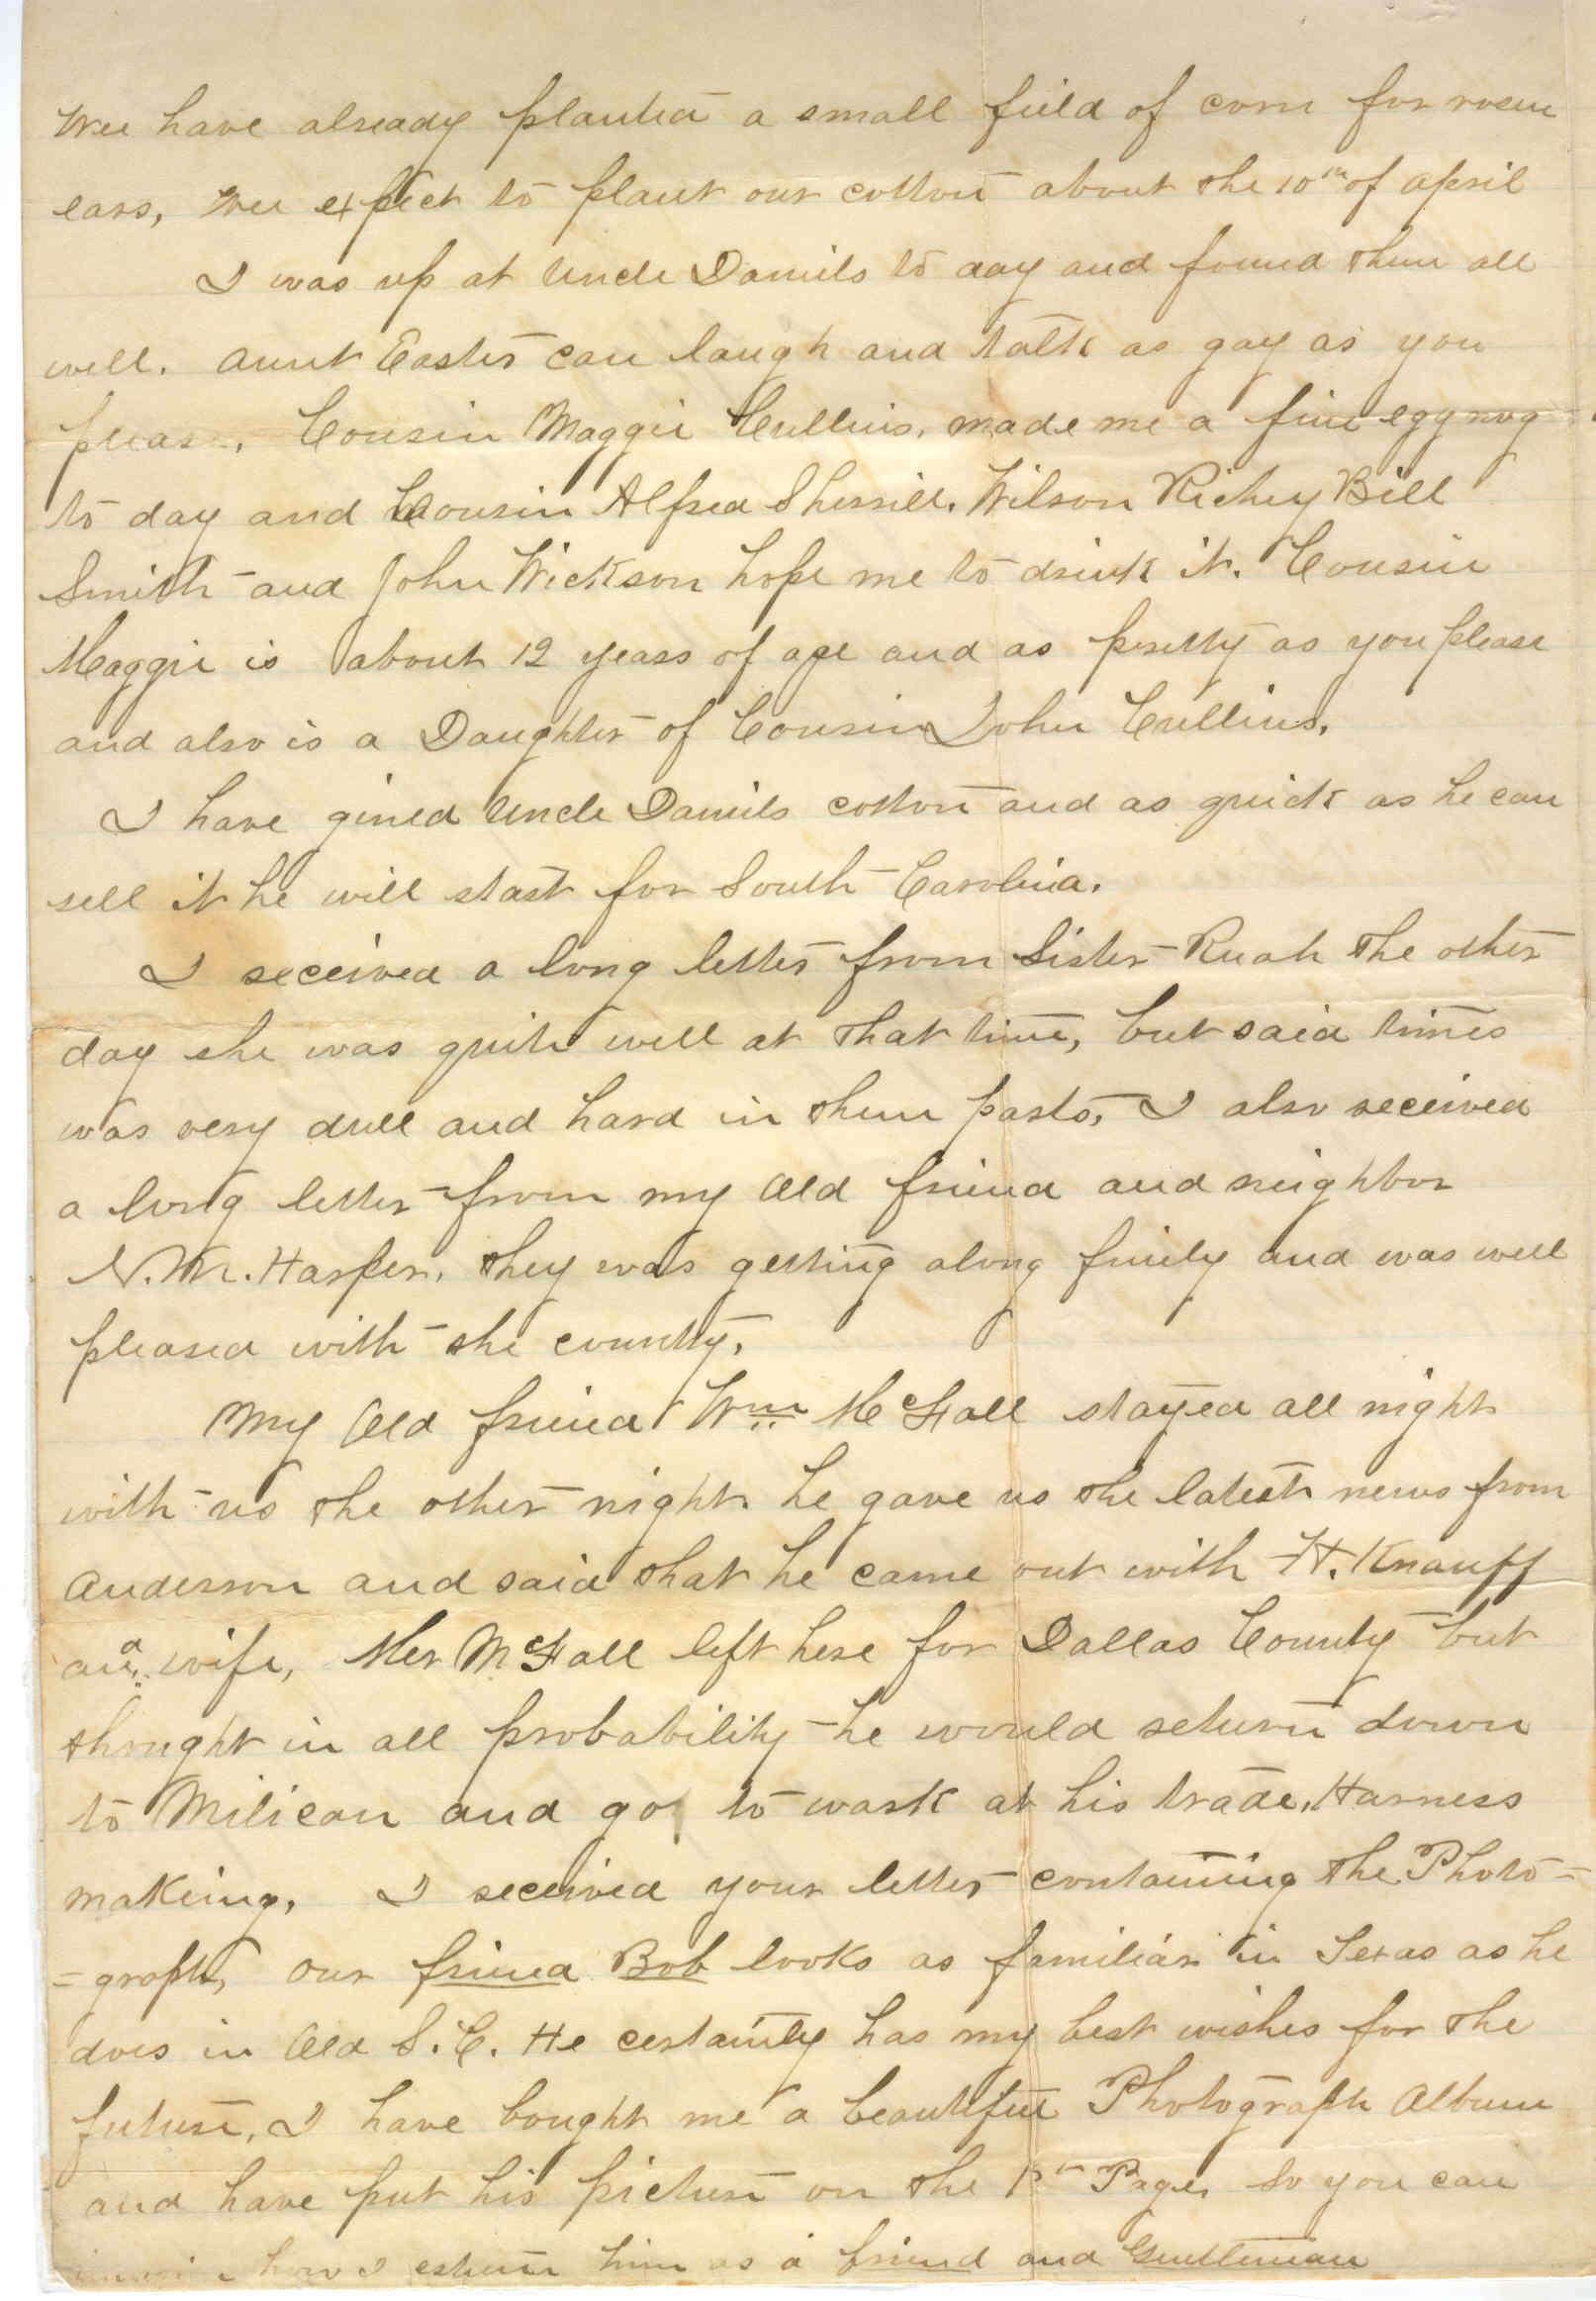 Wee have already planted a small field of corn for rosen
ears, wee expect to plant our cotton about the 10th of april
I was up at Uncle Daniels to day and found them all
well. aunt Easter can laugh and talk as gay as you
pleas. Cousin Maggie Cullins, made me a fine eggnog
to day and Cousin Alfred Sherrill. Wilson Richey Bill
Smith and John Wickson hope me to drink it. Cousin
Maggie is about 12 years of age and as pretty as you please
and also is a Daughter of Cousin John Cullins.
I have gined Uncle Daniels cotton and as quick as he can
sell it he will start for South Carolina.
I received a long letter from Sister Ruah the other
day she was quite well at that time, but said times
was very dull and hard in them parts, I also received
a long letter from my Old friend and neighbor
N. M. Harper. they was getting along finely and was well
pleased with the country.
My Old friend Wm McFall stayed all night
with us the other night. he gave us the latest news from
Anderson and said that he came out with H. Knauff
and wife, Mer McFall left here for Dallas County but
thought in all probability he would return down
to Milican and go to work at his trade. Harness
makeing. I received your letter containing the Photo-
=graph, our friend Bob looks as familiar in Texas as he
does in Old S.C. He certainly has my best wishes for the
future, I have bought me a beautiful Photograph Album
and have put his picture on the 1st Page. So you can
how I esteem him as a friend and Gentleman